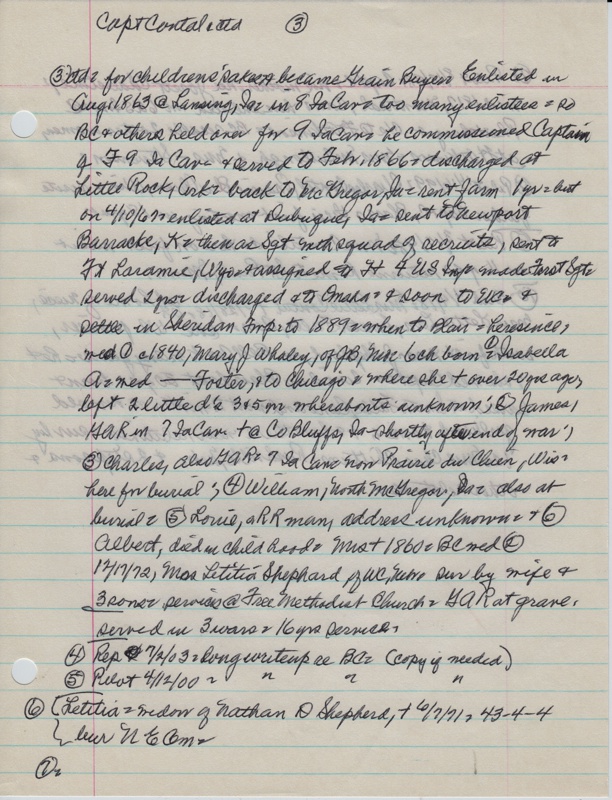 Capt Contaletta ③
③ ctd = for childrens' sakes & became Grain Buyer = Enlisted in
Aug 1863 @ Lansing, Ia = in 8 Ia Cav = too many enlistees = so
BC & others held over for 9 Ia Cav = he commissioned Captain
of F 9 Ia Cav = & served to Febr, 1866 = discharged at
Little Rock, Ark = back to McGregor, Ia = rent farm 1 yr = but
on 4/10/67 = enlisted at Dubuque, Ia = sent to Newport
Barracks, K = then as Sgt with squad of recruits, sent to
Ft Laramie, Wyo = & assigned to H 4 US Inf = made First Sgt =
served 2 yrs = discharged & to Omaha = & soon to WC = &
settle in Sheridan Imp to 1889 = when to Blair = here since,
med ① c 1840, Mary J Whaley, of NB, = 6 ch born = ① Isabella
A = med — Foster, & to Chicago = where she + over 20 yrs ago,
left 2 little d's 3 & 5 = whereabouts unknown; ② James,
GAR in 7 Ia Cav = + @ Co Bluffs, Ia = shortly after end of war;
③ Charles, also GAR = 7 Ia Cav = now Prairie du Chien, Wis =
here for burial; ④ William, North McGregor, Ia = also at
burial = ⑤ Louie, a RR man, address unknown = & ⑥
Albert, died in child hood = Mrs + 1860 = BC med ②
17/17/72, Mrs Letitia Shephard of WC, Nebr = sur by wife &
3 sons = services @ Free Methodist Church = GAR at grave.
served in 3 wars = 16 yrs service =
④ Rep 7/2/03 = Long writeup re BC = (copy if needed)
⑤ Pilot 4/12/00 = " " "
⑥ [Letitia = widow of Nathan D Shepherd, + 6/7/71 = 43-4-4
bur N E Cem =
⑦ =